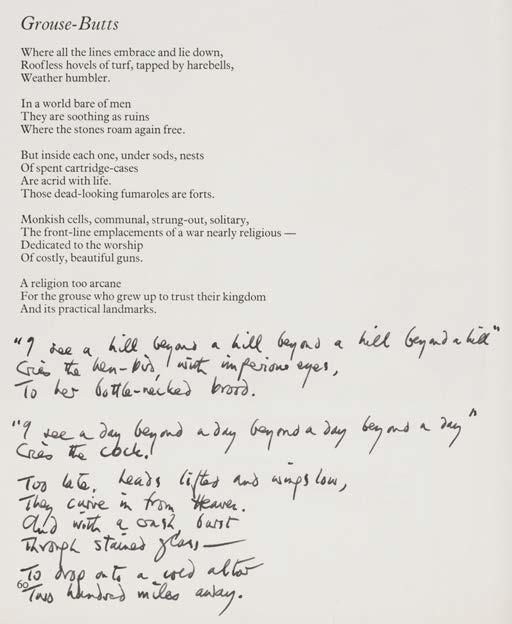 Grouse-Butts
Where all the lines embrace and lie down,
Roofless hovels of turf, tapped by harebells,
Weather humbler.
In a world bare of men
They are soothing as ruins
Where the stones roam again free.
But inside each one, under sods, nests
Of spent cartridge-cases
Are acrid with life.
Those dead-looking fumaroles are forts.
Monkish cells, communal, strung-out, solitary,
The front-line emplacements of a war nearly religious —
Dedicated to the worship
Of costly, beautiful guns.
A religion too arcane
For the grouse who grew up to trust their kingdom
And its practical landmarks.
"I see a hill beyond a hill beyond a hill beyond a hill"
Cries the hen-bird, with imperious eyes,
To her bottle-necked brood.
"I see a day beyond a day beyond a day beyond a day"
Cries the cock.
Too late, heads lifted and wings low,
They curve in from Heaven.
And with a crash, burst
Through stained glass —
To drop onto a cold altar
60 Two hundred miles away.